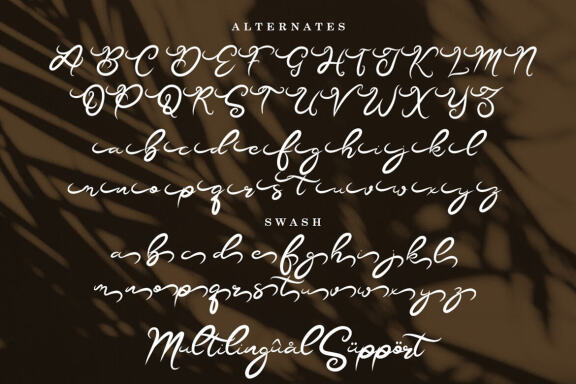 ALTERNATES
A B C D E F G H I J K L M N
O P Q R S T U V W X Y Z
a b c d e f g h i j k l
m n o p q r s t u v w x y z
SWASH
a b c d e f g h i j k l
m n o p q r s t u v w x y z
Multilingûål Süppört